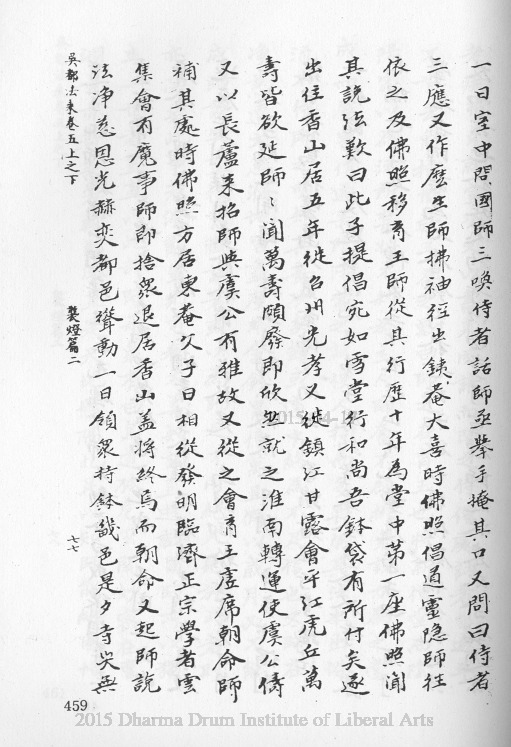 一日室中問國師三喚侍者話師亟舉手掩其口又問曰侍者
三應又作麼生師拂袖徑出鐵菴大喜時佛照倡道靈隐師往
依之及佛照移育王師從其行歷十年為堂中第一座佛照闻
其說法歎曰此子提倡宛如雪堂行和尚吾鉢袋有所付矣遂
出住香山居五年徙台州光孝又徙鎮江甘露會平江虎丘萬
壽皆欲延師〻聞萬壽頗廢即欣然就之淮南轉運使虞公儔
又以長蘆来招師與虞公有雅故又從之會育王虛席朝命師
補其處時佛照方居東菴父子日相從發明臨濟正宗學者雲
集會有魔事師即捨衆退居香山盖將終焉而朝命又起師說
法净慈恩光赫奕都邑聳動一日領衆持鉢畿邑是夕寺災無
吴都法乘卷五上之下
熒燈篇二
七七
459
2015 Dharma Drum Institute of Liberal Arts